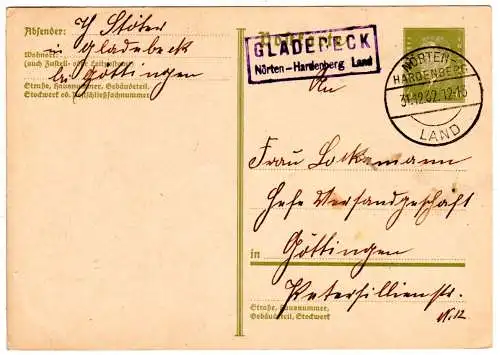 Absender: H Stöter
in Gladebeck
Wohnort:
(auch Zustell- oder Leitpostamt)
bei Göttingen
Straße, Hausnummer, Gebäudeteil,
Stockwerk od. Postschließfachnummer
Postkarte
GLADEBECK
Nörten-Hardenberg Land
NÖRTEN-
HARDENBERG
31.12.32.12-13
LAND
An
Frau Lockemann
Hefe Versandgeschäft
in Göttingen
Petersilienstr.
N. 12
Straße, Hausnummer,
Gebäudeteil, Stockwerk